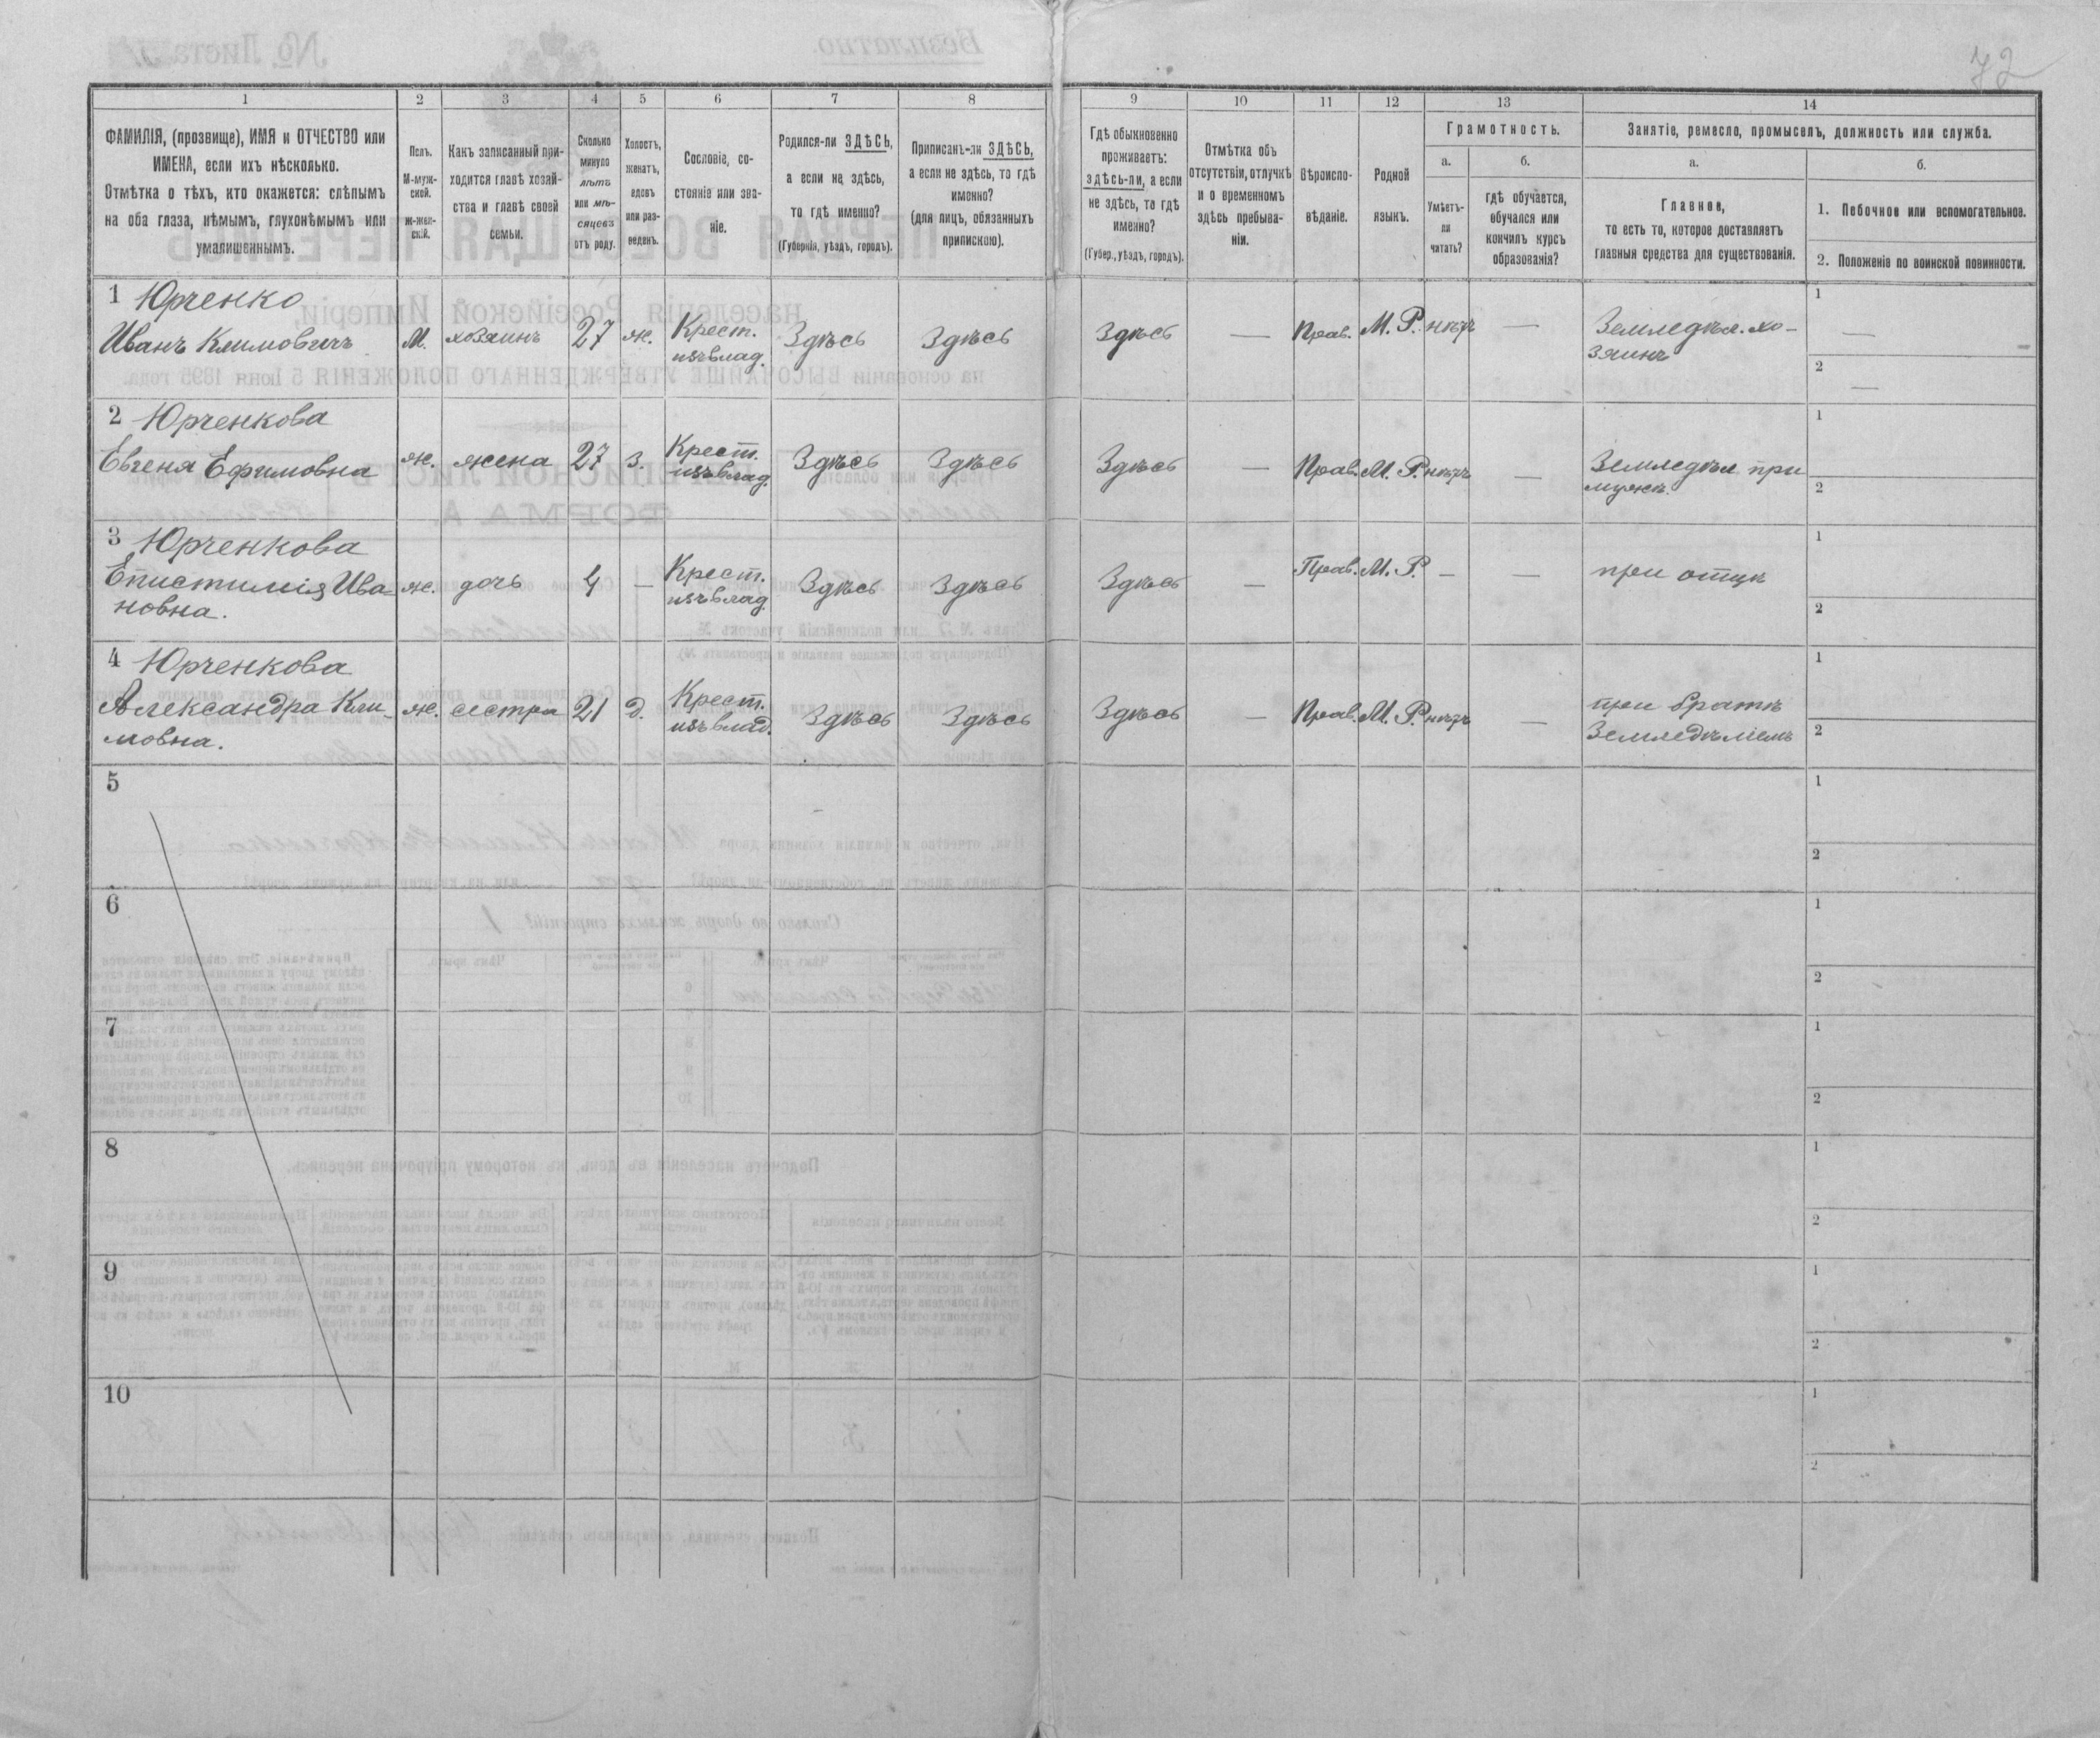 72
1 2 3 4 5 6 7 8 9 10 11 12 13 14
ФАМИЛІЯ, (прозвище), ИМЯ и ОТЧЕСТВО или
ИМЕНА, если ихъ нѣсколько.
Отмѣтка о тѣхъ, кто окажется: слѣпымъ
на оба глаза, нѣмымъ, глухонѣмымъ или
умалишеннымъ.
Полъ.
М-муж-
ской.
ж-жен-
скій.
Какъ записанный при-
ходится главѣ хозяй-
ства и главѣ своей
семьи.
Сколько
минуло
лѣтъ
или мѣ-
сяцевъ
отъ роду.
Холостъ,
женатъ,
вдовъ
или раз-
веденъ.
Сословіе, со-
стояніе или зва-
ніе.
Родился-ли ЗДѢСЬ,
а если не здѣсь,
то гдѣ именно?
(Губернія, уѣздъ, городъ).
Приписанъ-ли ЗДѢСЬ,
а если не здѣсь, то гдѣ
именно?
(для лицъ, обязанныхъ
припискою).
Гдѣ обыкновенно
проживаетъ:
здѣсь-ли, а если
не здѣсь, то гдѣ
именно?
(Губер., уѣздъ, городъ).
Отмѣтка объ
отсутствіи, отлучкѣ
и о временномъ
здѣсь пребыва-
ніи.
Вѣроиспо-
вѣданіе.
Родной
языкъ.
Грамотность.
а.
Умѣетъ-
ли
читать?
б.
гдѣ обучается,
обучался или
кончилъ курсъ
образованія?
Занятіе, ремесло, промыселъ, должность или служба.
а.
Главное,
то есть то, которое доставляетъ
главныя средства для существованія.
б.
1. Побочное или вспомогательное.
2. Положеніе по воинской повинности.
1 Юрченко
Иванъ Климовичъ М. хозяинъ 27 ж. Крест. изъ влад. Здѣсь Здѣсь Здѣсь — Прав. М. Р. нѣтъ — Земледѣл. хо-
зяинъ
1 —
2 —
2 Юрченкова
Евгеня Ефимовна ж. жена 27 З. Крест. изъ влад. Здѣсь Здѣсь Здѣсь — Прав. М. Р. нѣтъ — Земледѣл при
мужѣ.
1
2
3 Юрченкова
Епистимія Ива-
новна. ж. дочь 4 — Крест. изъ влад Здѣсь Здѣсь Здѣсь — Прав. М. Р. — — при отцѣ
1
2
4 Юрченкова
Александра Кли-
мовна. ж. сестра 21 д. Крест. изъ влад. Здѣсь Здѣсь Здѣсь — Прав. М. Р. нѣтъ — при братѣ
Земледѣліемъ
1
2
5
1
2
6
1
2
7
1
2
8
1
2
9
1
2
10
1
2